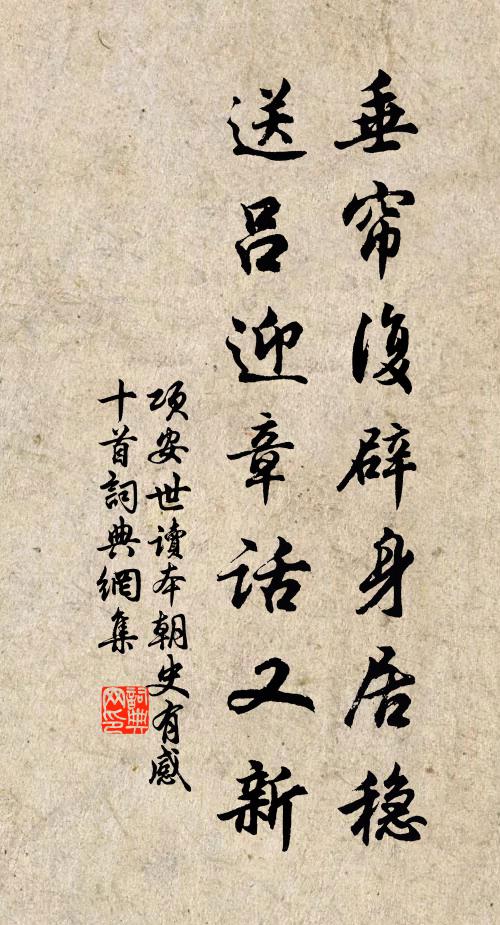 垂帘復辟身居稳
送吕迎章話又新
项安世讀本朝史有感
十首詞典網集
詞典
网印